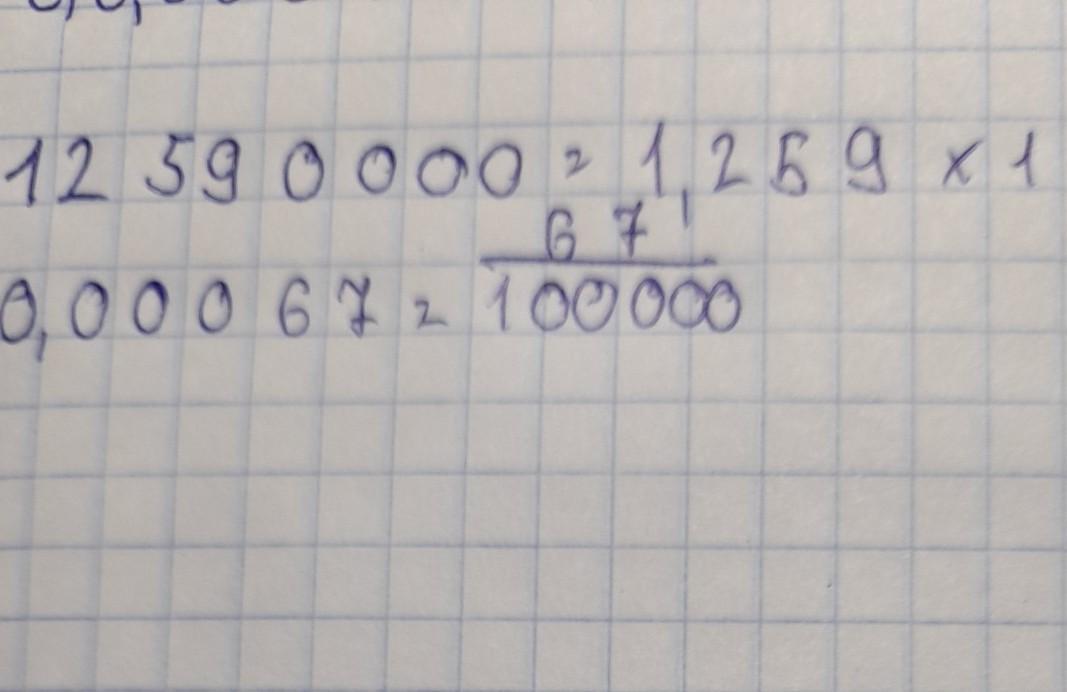 12590000 = 1,259 x 1
0,00067 = 67/100000